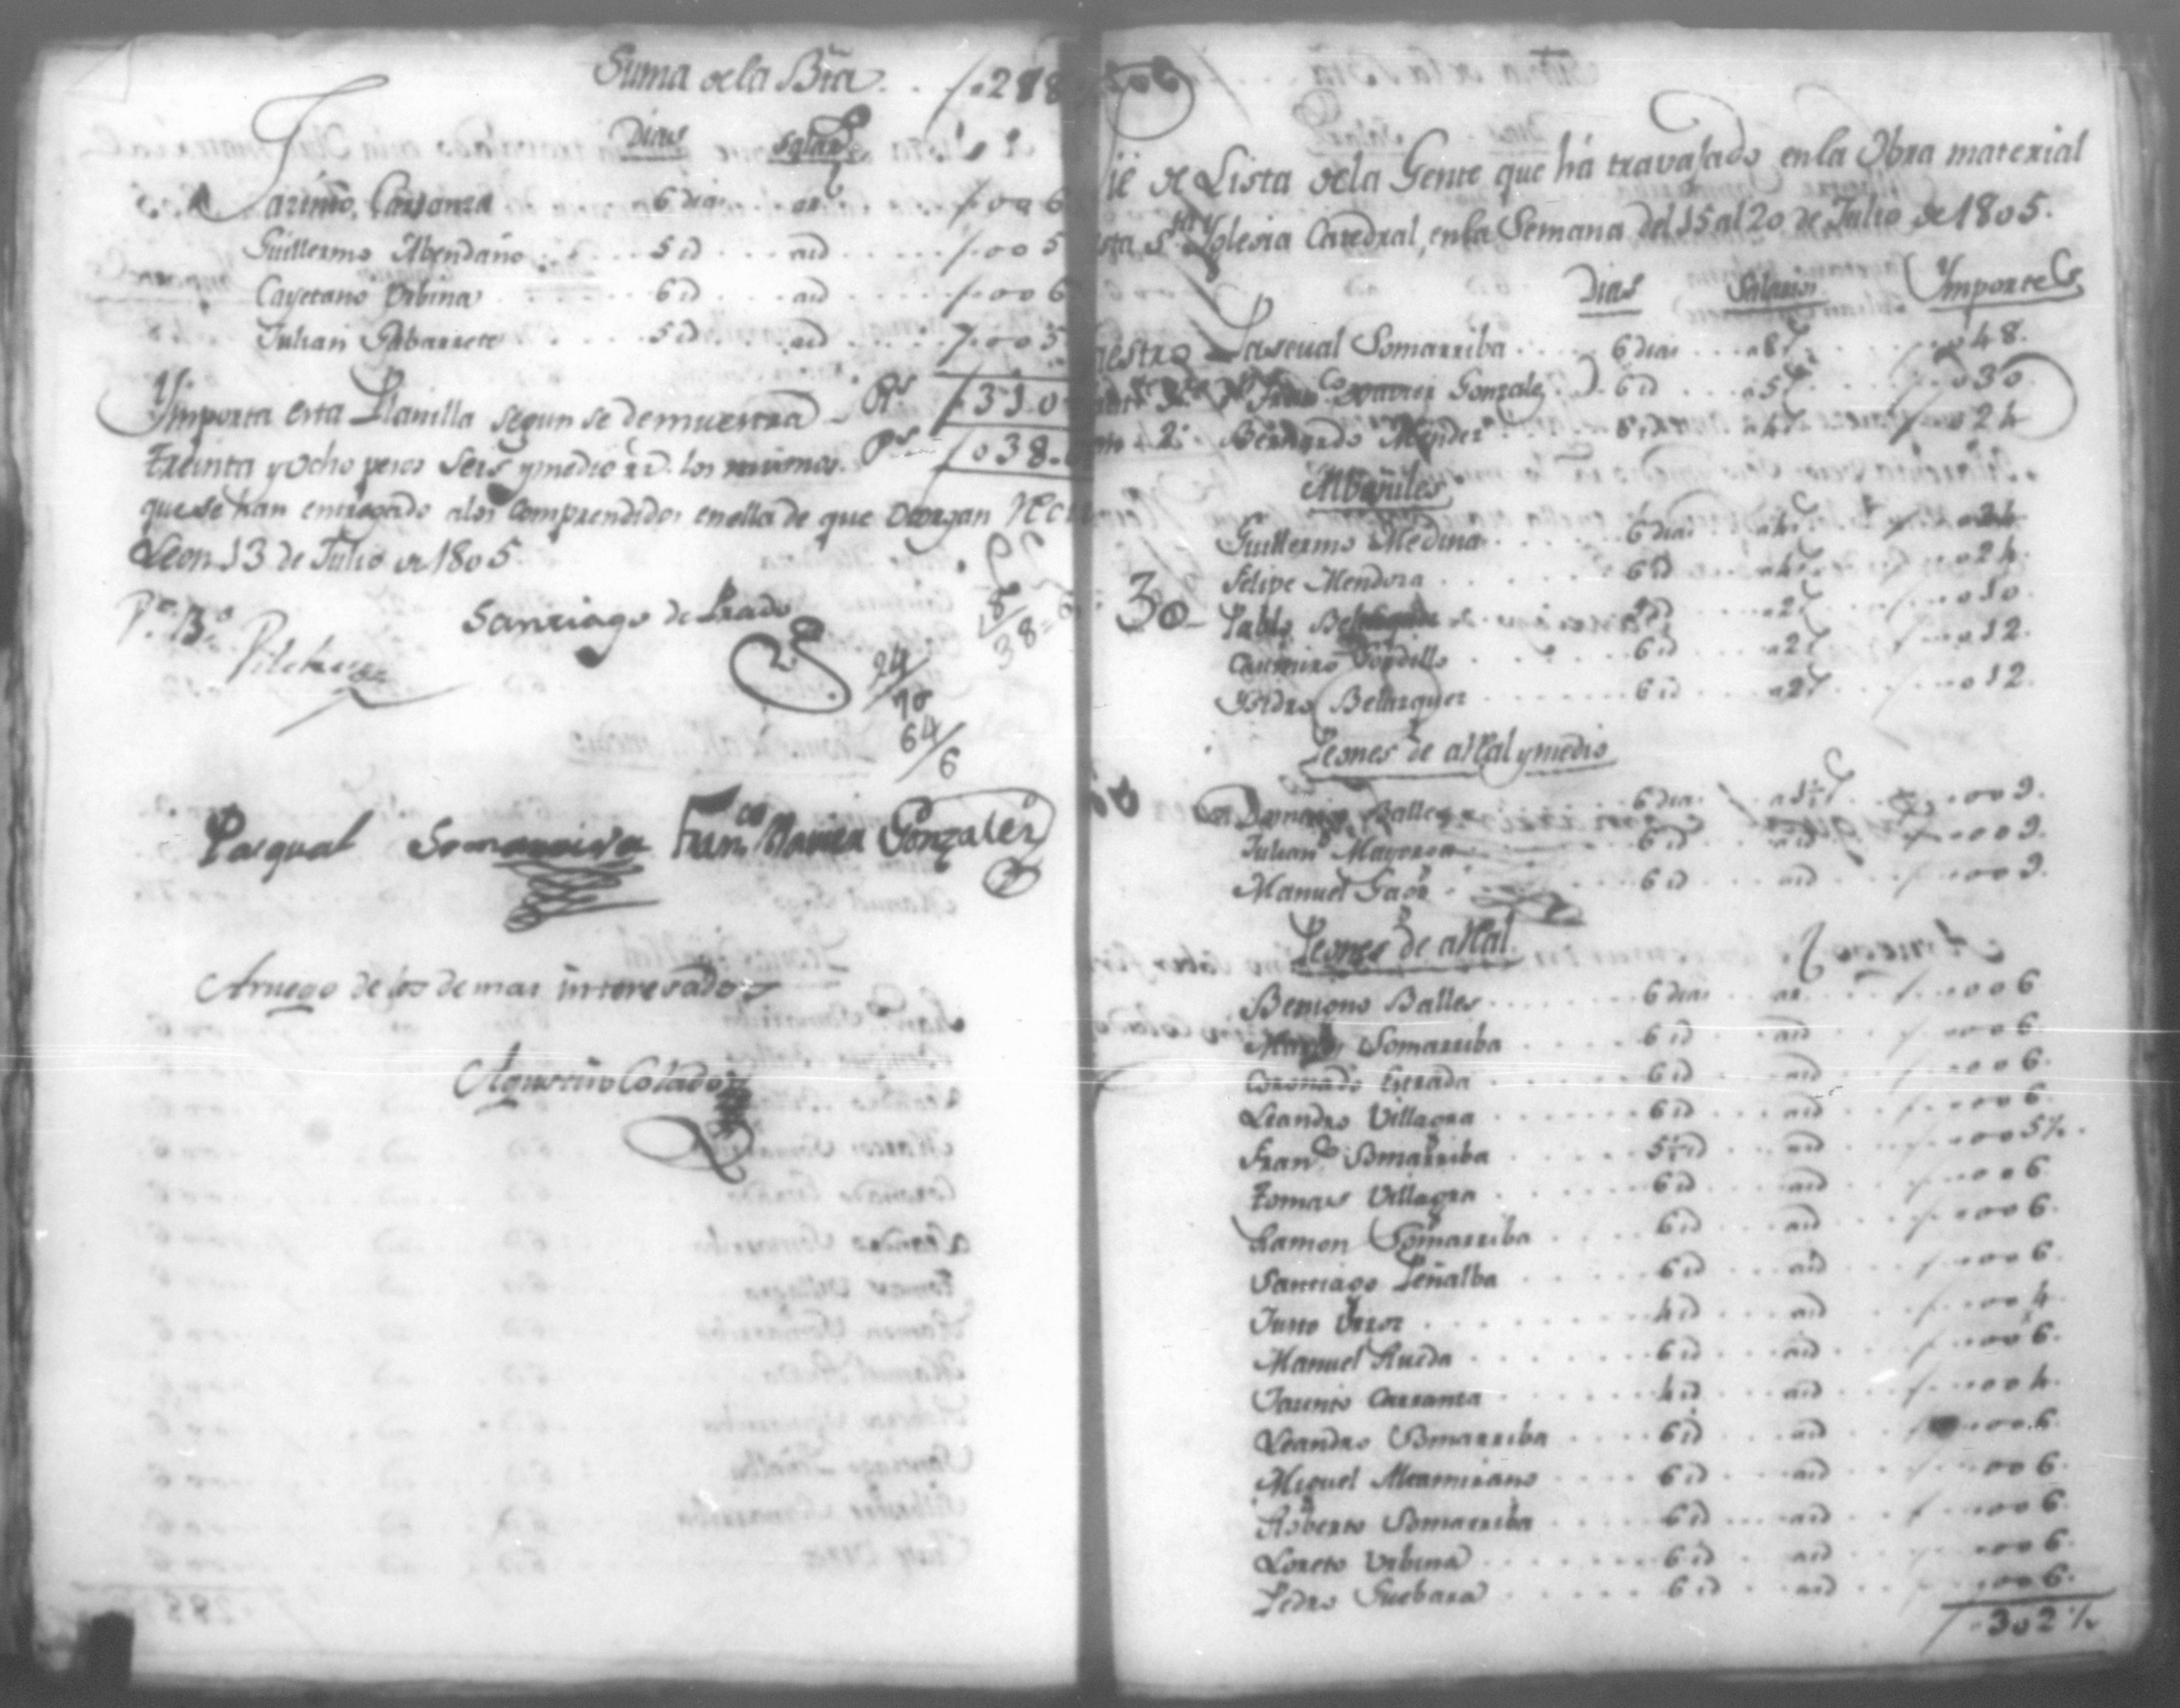 Suma de la Bta . . / . 288
Dias Salarº
Jacinto Carranza 6 dias . . a 1 . . / . 006
Guillermo Abendaño . . . . 5 id . . . . aid . . . . . / . 005
Cayetano Urbina . . . . . . 6 id . . . . aid . . . . / . 006
Julian Nabarrete . . . . . 5 id . . . . aid . . . . . / . 005
Ymporta esta Planilla segun se demuestra Rs / 310
treinta y ocho pesos seis y medio rs. los mismos Ps / 038.
que se han entregado alos comprendidos en ella de que otorgan
Leon 13 de Julio de 1805.
Pe. Bº
Santiago de Prado
8
38=6
24
70
64
6
Pasqual Somarriva Franco Xavier Gonzales
Aruego de los demas interesados
Agustin Colado
de Lista dela Gente que há travajado enla Obra material
sta Sta Yglesia Catedral, enla Semana del 15 al 20 de Julio de 1805.
Dias Salarios Ymporte
Pascual Somarriba . . . . 6 dias . . . a 8 . . . 048.
Franco Xavier Gonzales . 6 id . . . a 5 . . . 030
Bernardo Mendez . . . 6 id . . . a 4 . . . 024
Albañiles
Guillermo Medina . . . . 6 dias . . a 4 . . / . . 024
Felipe Mendoza . . . . . 6 id . . . a 4 . . / . . 024.
30
Pablo . . . 5 id . . . . a 2 . . / . . 010.
Casimiro Gordillo . . . . 6 id . . . . a 2 . . / . . 012.
Ysidro Belasquez . . . . . 6 id . . . . a 2 . . / . . 012.
Peones de a Real y medio
Domingo Balles . . . 6 dias . . a 1½ . . . . 009.
Julian Mayorga . . . 6 id . . . aid . . / . . 009.
Manuel Gaor . . . 6 id . . . aid . . / . . 009.
Peones de a Real
Benigno Balles . . . . . . 6 dias . . . a 1 . . . / . . . 006
Somarriba . . . . . 6 id . . . . aid . . . / . . . 006.
Coronado Estrada . . . . . 6 id . . . . aid . . . / . . . 006.
Leandro Villagra . . . . . 6 id . . . . aid . . . / . . . 006.
Franco Somarriba . . . . . 5½ id . . . aid . . . . . . 005½.
Tomas Villagra . . . . . 6 id . . . . aid . . . / . . . 006
Ramon Somarriba . . . . . 6 id . . . . aid . . . / . . . 006.
Santiago Peñalba . . . . . 6 id . . . . aid . . . / . . . 006.
Justo . . . . . . . . 4 id . . . . aid . . . / . . . 004.
Manuel Rueda . . . . . . . 6 id . . . . aid . . . / . . . 006.
Jacinto Carranza . . . . . 4 id . . . . aid . . . / . . . 004.
Leandro Somarriba . . . . 6 id . . . . aid . . . . . . 006.
Miguel Altamirano . . . . 6 id . . . . aid . . . / . . . 006.
Roberto Somarriba . . . . 6 id . . . . aid . . . / . . . 006.
Loreto Urbina . . . . . . 6 id . . . . aid . . . / . . . 006.
Pedro Guebara . . . . . . 6 id . . . . aid . . . . . . 006.
/ . 302½